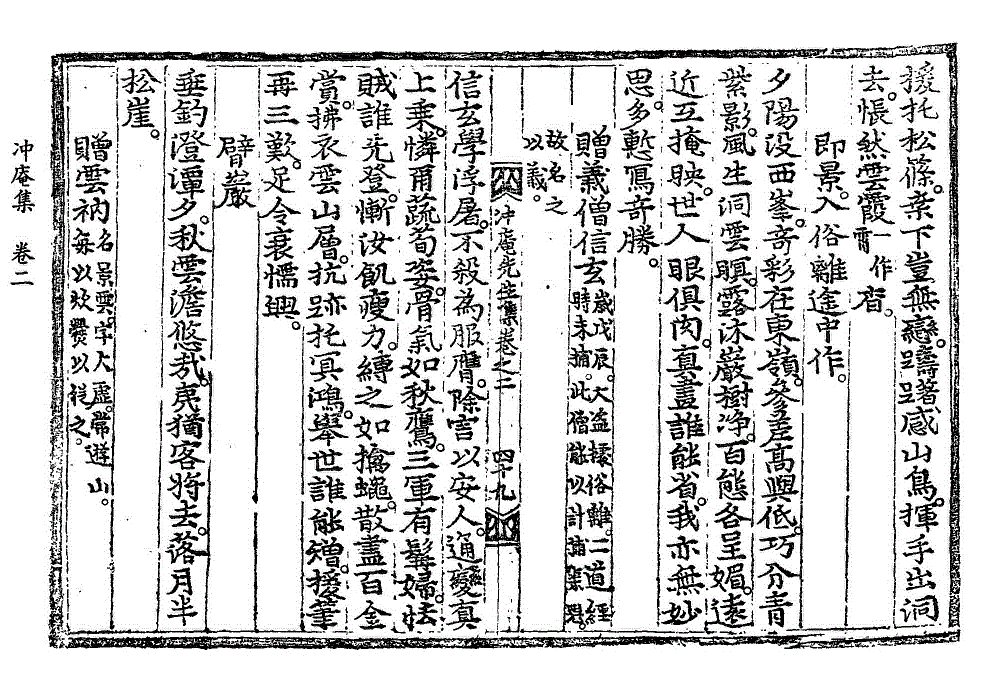 援托松篠枽下豈無戀躊躇感山鳥揮手出洞
去悵然雲霞一作霄宿
即景入俗離途中作
夕陽没西峯奇彩在東嶺參差高與低巧分青
紫影風生洞雲暝露沐巖樹淨百態各呈媚遠
近互掩映世人眼俱肉真畫誰能省我亦無妙
思多慙寫奇勝
贈義僧信玄歲戊辰大盗據俗離二道經時未捕此僧能以計
故名之以義
冲庵先生集卷之二 四十九
信玄學浮屠不殺為服膺除害以安人通變真
上乘憐爾蔬荀姿骨氣如秋鷹三軍有髯婦去
賊誰先登慚汝飢瘦力縛之如擒蠅散盡百金
賞拂衣雲山層抗跡托冥鴻舉世誰能矰援筆
再三歎足令衰懦興
臂巖
垂釣澄潭夕秋雲澹悠哉夷猶客將去落月半
松崖
贈雲衲名景雲字大虛常遊山每以炊爨以從之
冲庵集 卷二